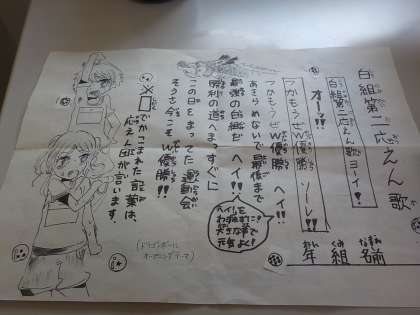 白組第二応えん歌
年 組 名前
白組第二応えん歌ヨーイ!
オーッ!!
つかもうぜW優勝 ソーレ!!
つかもうぜW優勝 ヘイ!!
あきらめないで最後まで
最強の白組だ ヘイ!!
勝利の道へまっすぐに
この日をまってた運動会
モクさ今こそW優勝!!
ヘイ!を
わすれずに!
大きな声で
元気よく!
※□でかこまれた言葉は、
応えん団が言います。
(ドラゴンボール
オープニングテーマ)